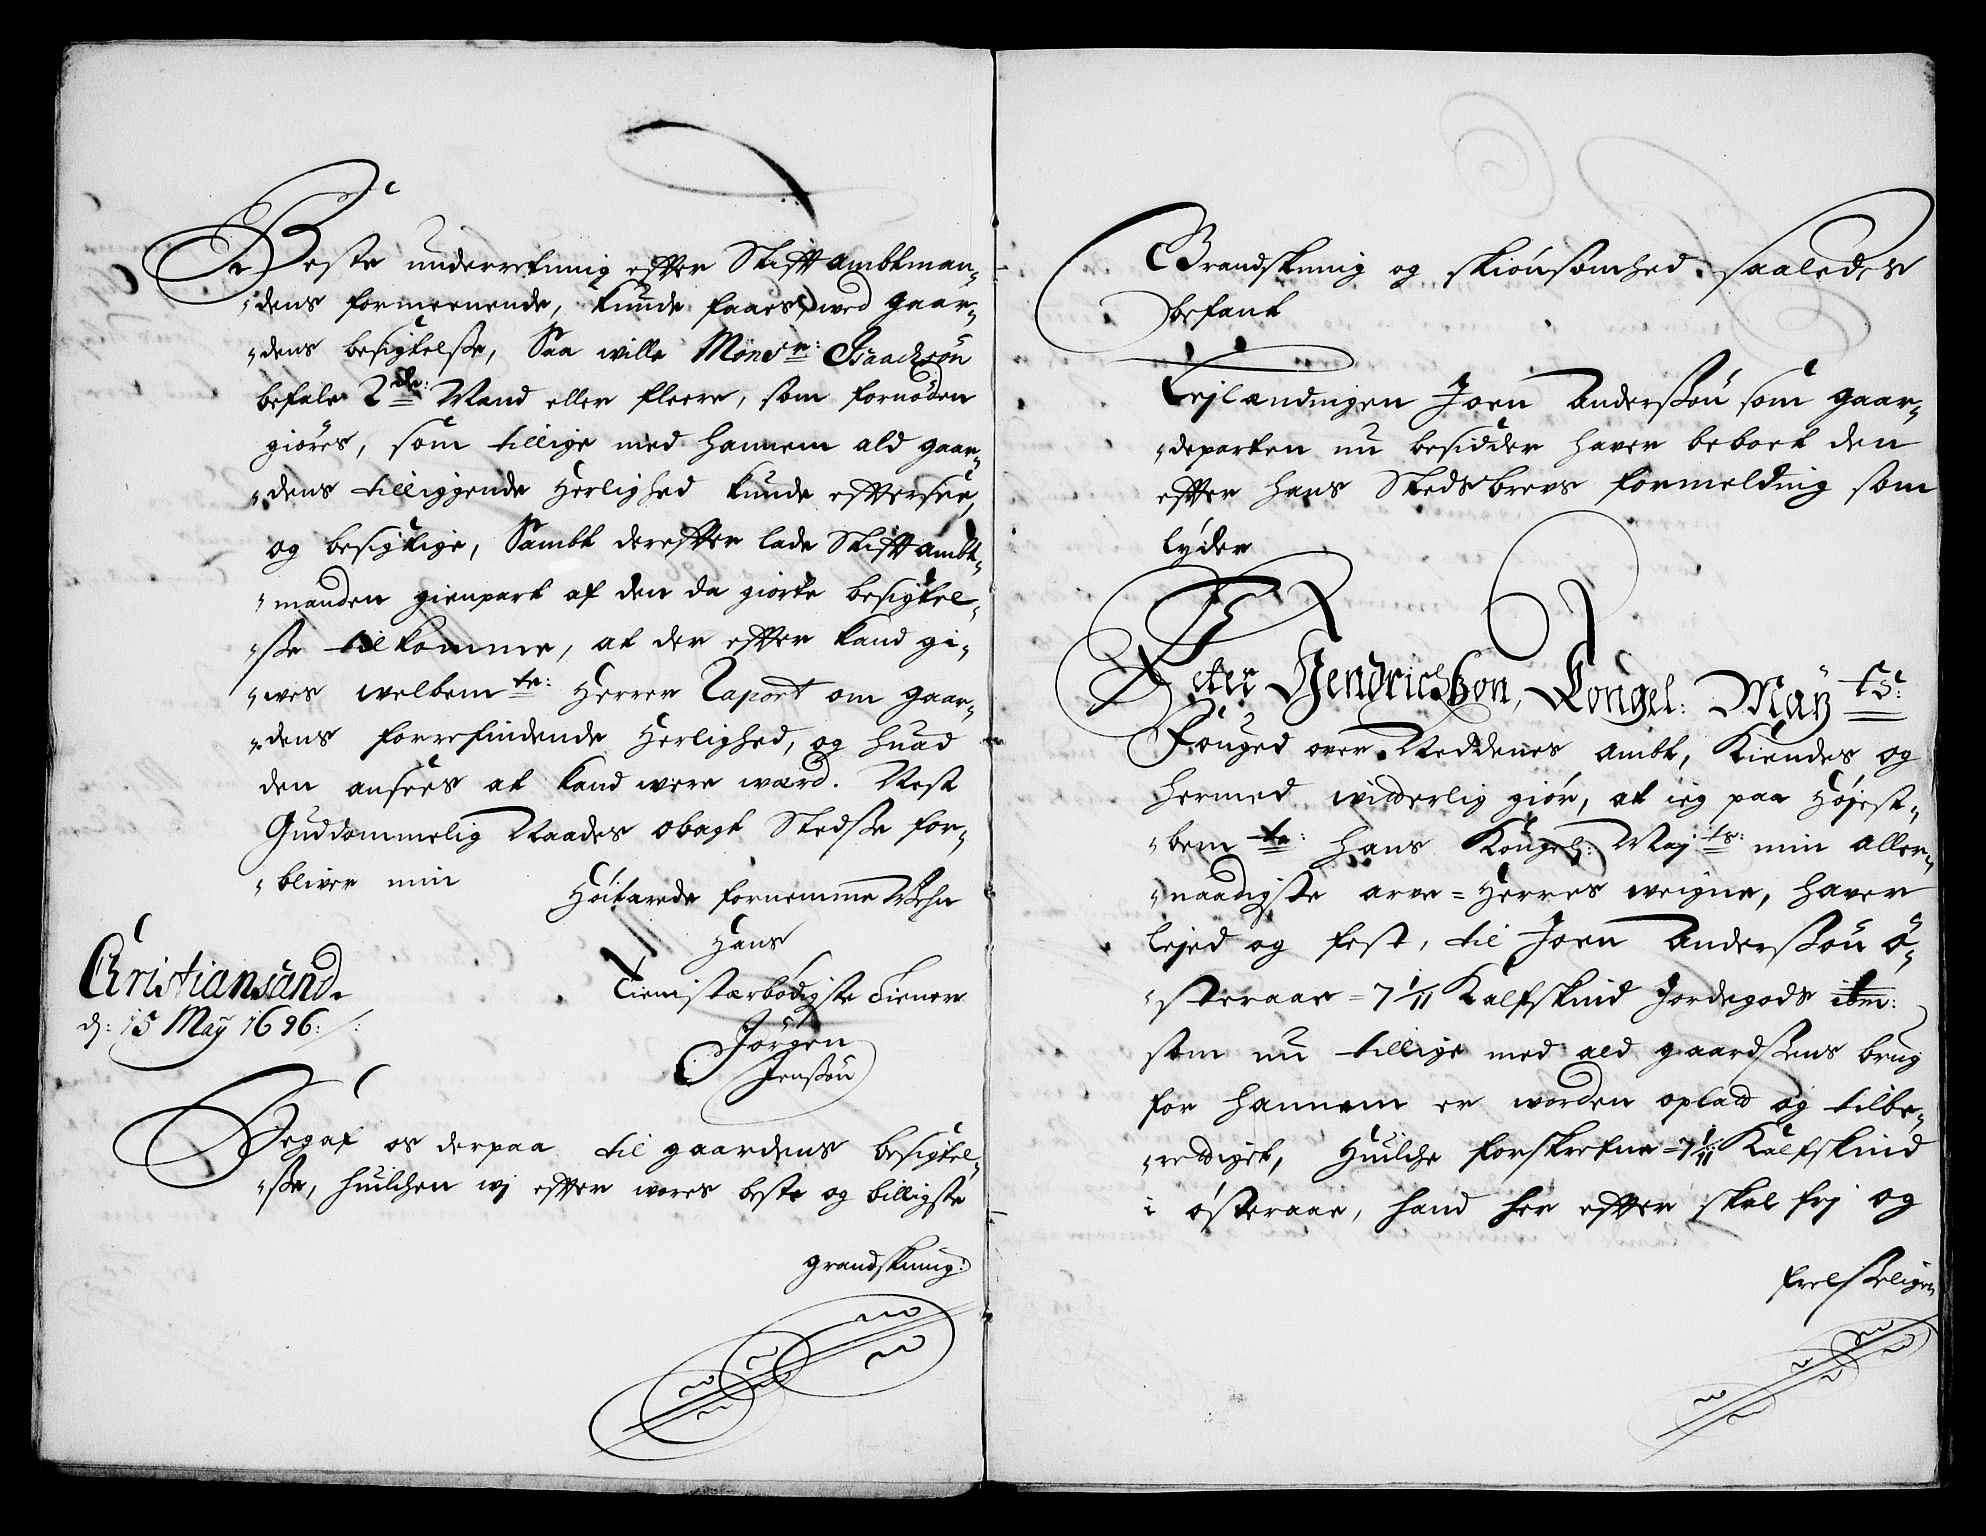 Beste underretning effter Stifftambtman-
dens formeenende, kunde faaes, wed gaar-
dens besigtelße, Saa wille Monsr: Isaachsøn
befale 2de: Mand eller fleere, som fornøden
giøres, som tillige med hannem ald gaar-
dens tilliggende Herlighed kunde effterseé,
og besigtige, Sambt dereffter lade Stifftambt-
manden gienpart af den da giorte besigtel-
ße tilkomme, at der effter kand gi-
wes welbemte: Herrer Raport om gaar-
dens forrefindende Herlighed, og huad
den ansees at kand were werd. Nest
Guddommelig Naades obagt Stedße for-
bliver min
Høitærede fornemme Wehn
Hans
Tienistærbødigste Tiener
Jørgen
Jenßøn
Christiansand.
d: 15 Maÿ 1696:
Begaf os derpaa til gaardens besigtel-
ße, huilchen wj effter wores beste og billigste
grandskning:
Grandskning og skiønsomhed saaledes
befant
Lejlændingen Joen Anderßøn som gaar-
departen nu besidder haver beboet den
effter hans Stedsbrevs formelding som
lyder
Peter Hendrichßon, Kongel: Maÿtz:
Fouged over Neddenes ambt, Kiendes og
hermed widderlig giør, at ieg paa Højst-
bemte: Hans Kongel: Majts: min aller-
naadigste arve=Herres weigne, haver
lejed og fest, til Joen Anderßøn Ø-
steraae = 7 1/11 Kalfskind Jordegods
som nu tillige med ald gaardßens brug
for hannem er worden oplad og tilbe-
rediget, Huilche forskrefne 7 1/11 Kalfskind
i Østeraae, hand her effter skal frj og
frelßeligen